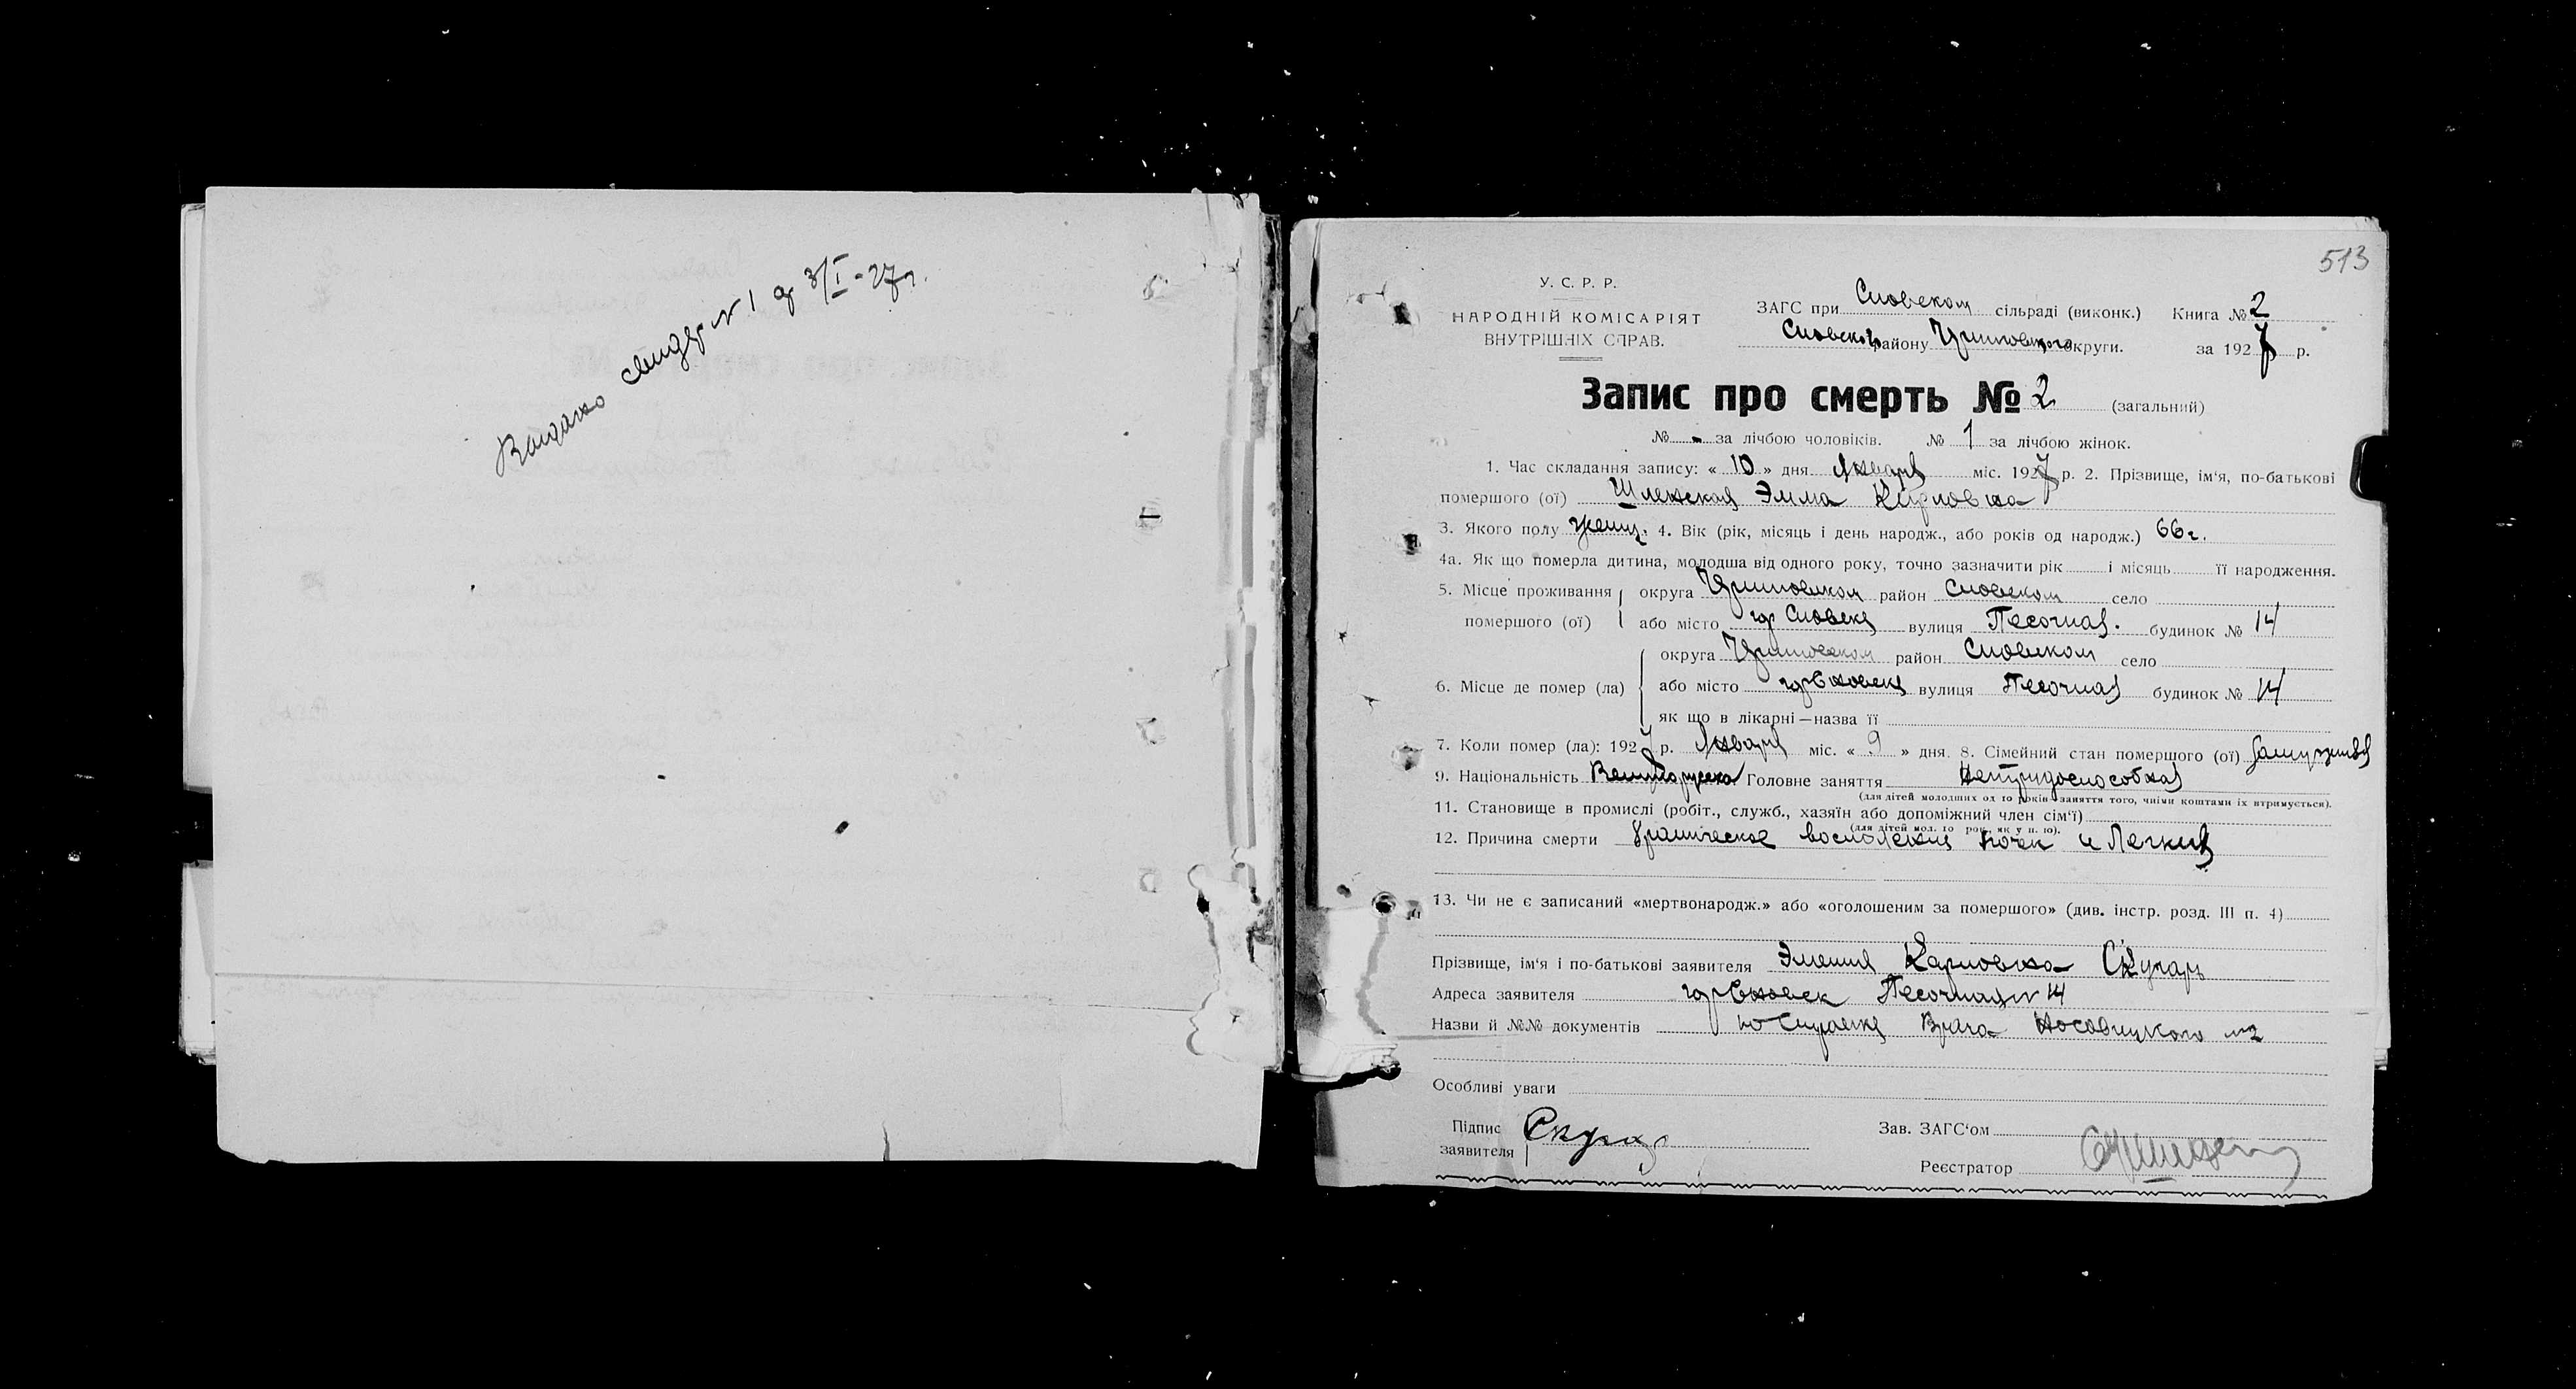 Выдано свидет № 1 от 3/I - 27 г.
513
У. С. Р. Р.
НАРОДНІЙ КОМІСАРІЯТ
ВНУТРІШНІХ СПРАВ.
ЗАГС при Сновском сільраді (виконк.) Книга № 2
Сновского району округи. за 1927 р.
Запис про смерть № 2 (загальний)
№ - за лічбою чоловіків. № 1 за лічбою жінок.
1. Час складання запису: « 10 » дня Января міс. 1927 р. 2. Прізвище, ім'я, по-батькові
помершого (ої) Эмма Карловна
3. Якого полу женщ. 4. Вік (рік, місяць і день народж., або років од народж.) 66 г.
4а. Як що померла дитина, молодша від одного року, точно зазначити рік і місяць її народження.
5. Місце проживання округа район Сновском село
помершого (ої) або місто гор Сновск вулиця Песочная. будинок № 14
округа район Сновском село
6. Місце де помер (ла) або місто гор Сновск вулиця Песочная будинок № 14
як що в лікарні — назва її
7. Коли помер (ла): 1927 р. Января міс. « 9 » дня. 8. Сімейний стан помершого (ої)
9. Національність Великорусска Головне заняття Нетрудоспособная
(для дітей молодших од 10 років—заняття того, чиїми коштами їх втримується).
11. Становище в промислі (робіт., служб., хазяїн або допоміжний член сім'ї)
(для дітей мол. 10 рок., як у п. 10).
12. Причина смерти Хроническое воспаление почек и Легких
13. Чи не є записаний «мертвонародж.» або «оголошеним за помершого» (див. інстр. розд. III п. 4)
Прізвище, ім'я і по-батькові заявителя Карловна
Адреса заявителя гор Сновск Песочная № 14
Назви й №№ документів Справка Врача Носовицкого № 2
Особливі уваги
Підпис
заявителя
Зав. ЗАГС'ом
Реєстратор